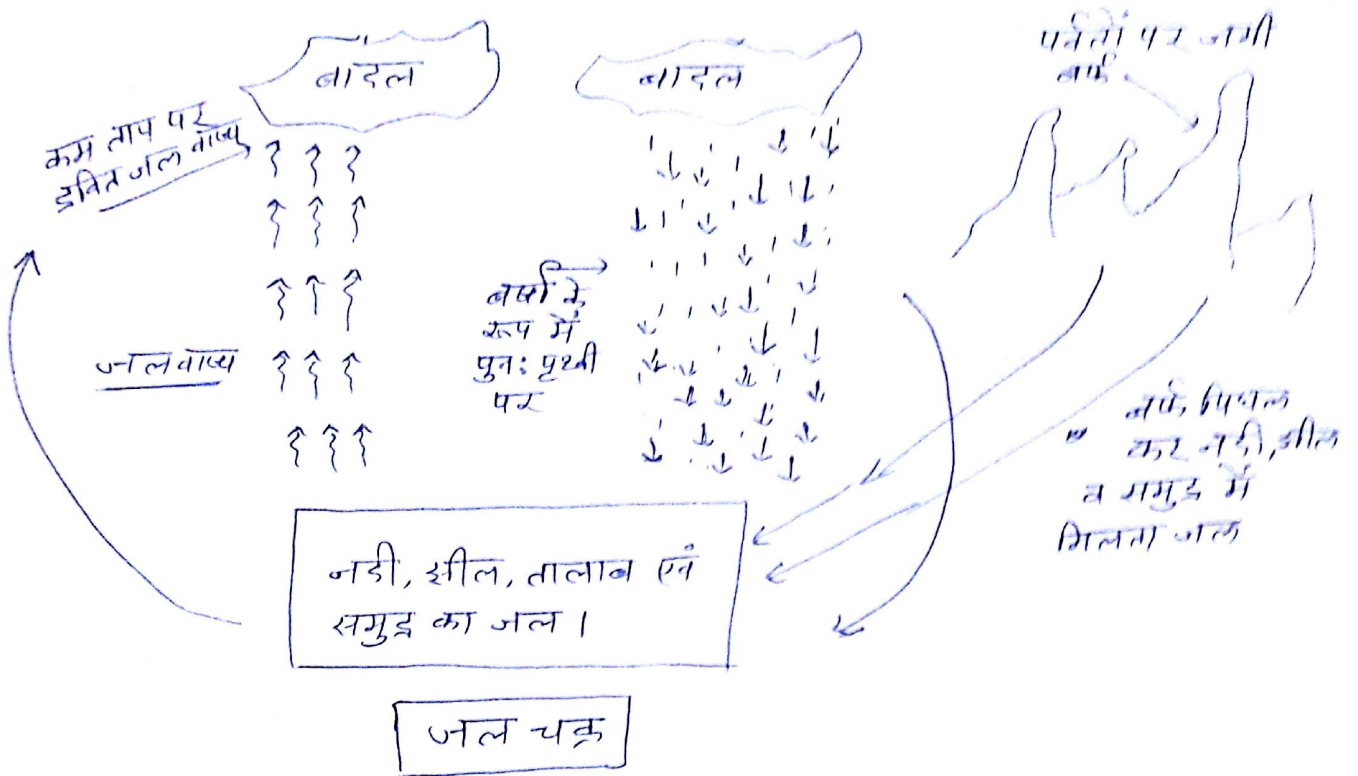 बादल
बादल
पर्वतों पर जमी
बर्फ
कम ताप पर
द्रवित जल वाष्प
जल वाष्प
बर्षा के
रूप में
पुनः पृथ्वी
पर
बर्फ पिघल
कर नदी, झील
व समुद्र में
मिलता जल
नदी, झील, तालाब एवं
समुद्र का जल।
जल चक्र